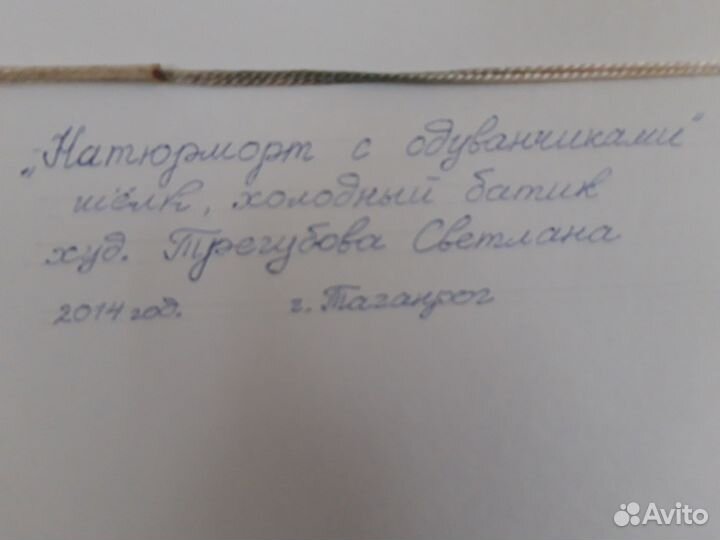 „Натюрморт с одуванчиками"
шёлк, холодный батик
худ. Трегубова Светлана
2014 год. г. Таганрог
Avito